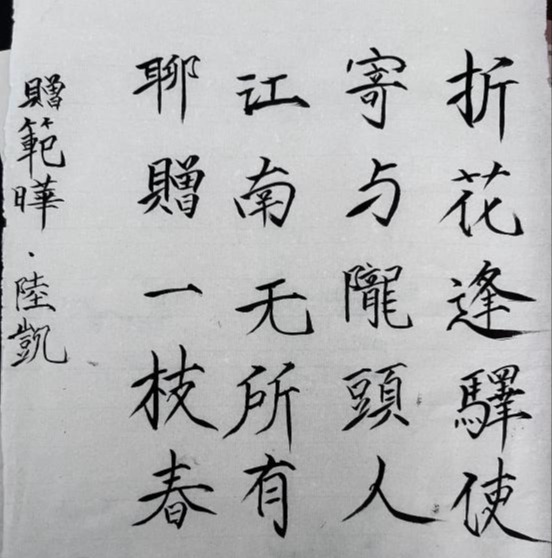 折花逢驛使
寄与隴頭人
江南无所有
聊贈一枝春
贈範曄·陸凱